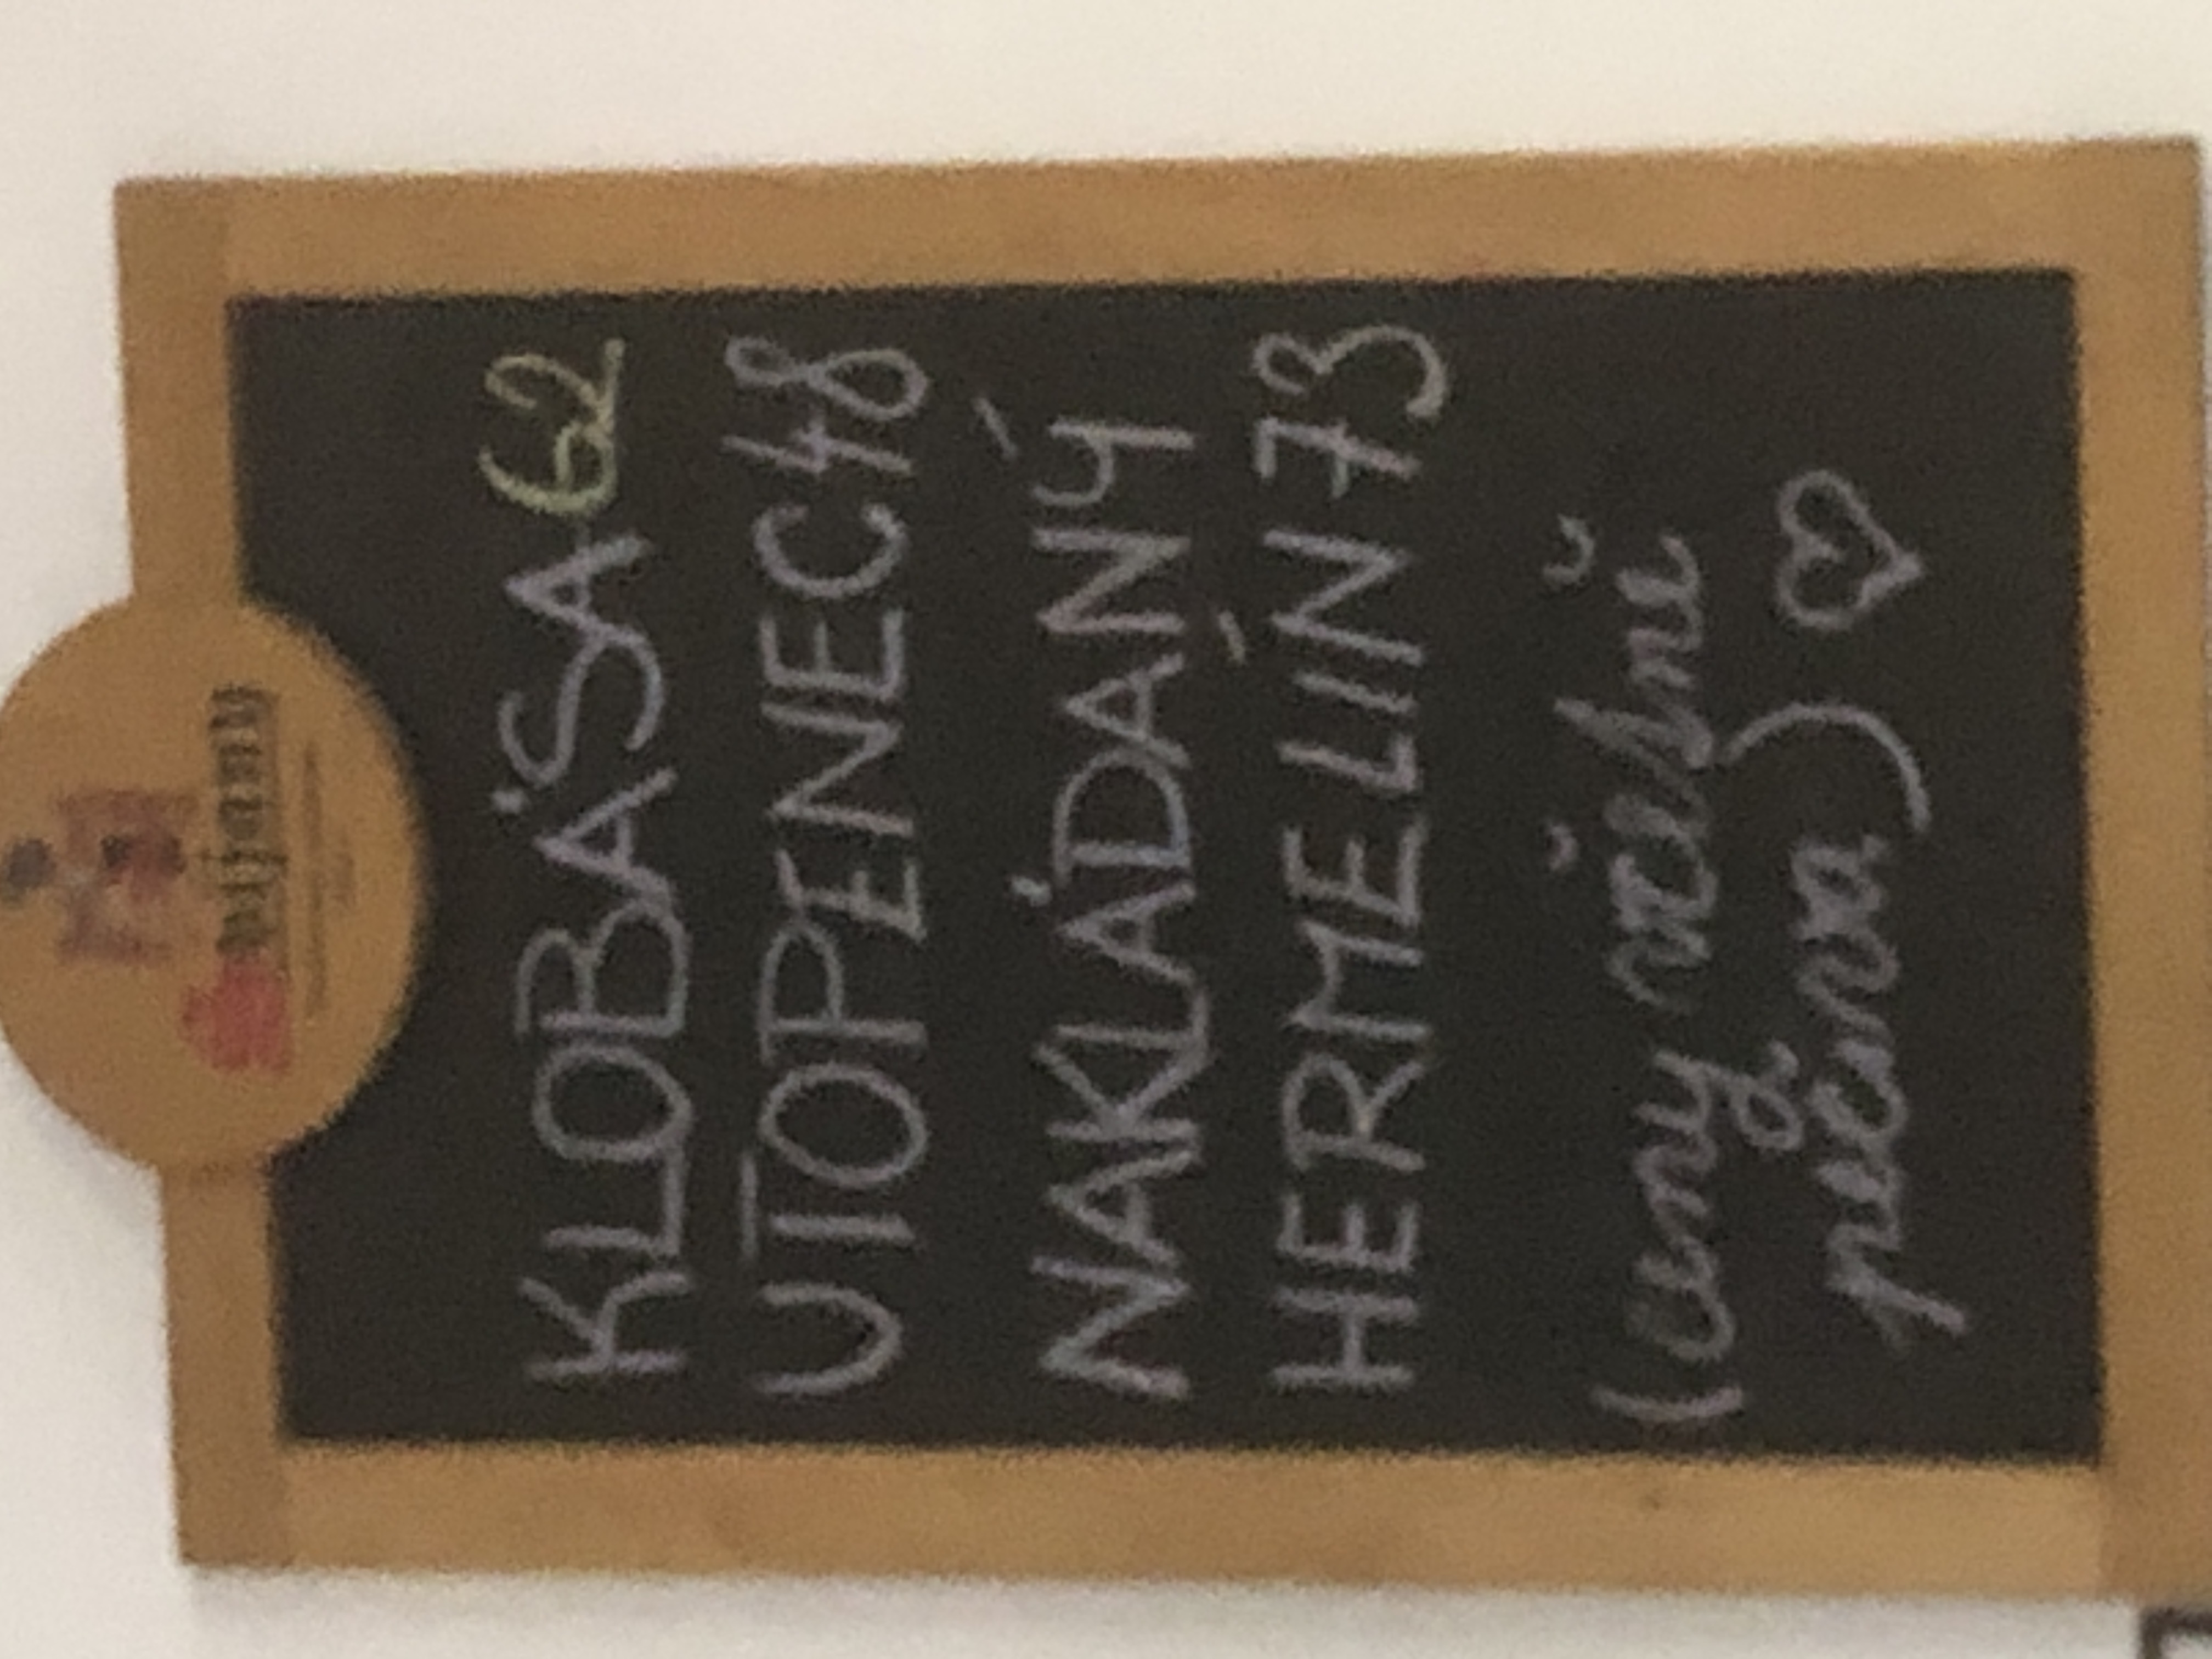 KLOBÁSA 62
UTOPENEC 48
NAKLÁDANÝ
HERMELÍN 73
(ceny včetně
pečiva) ♡